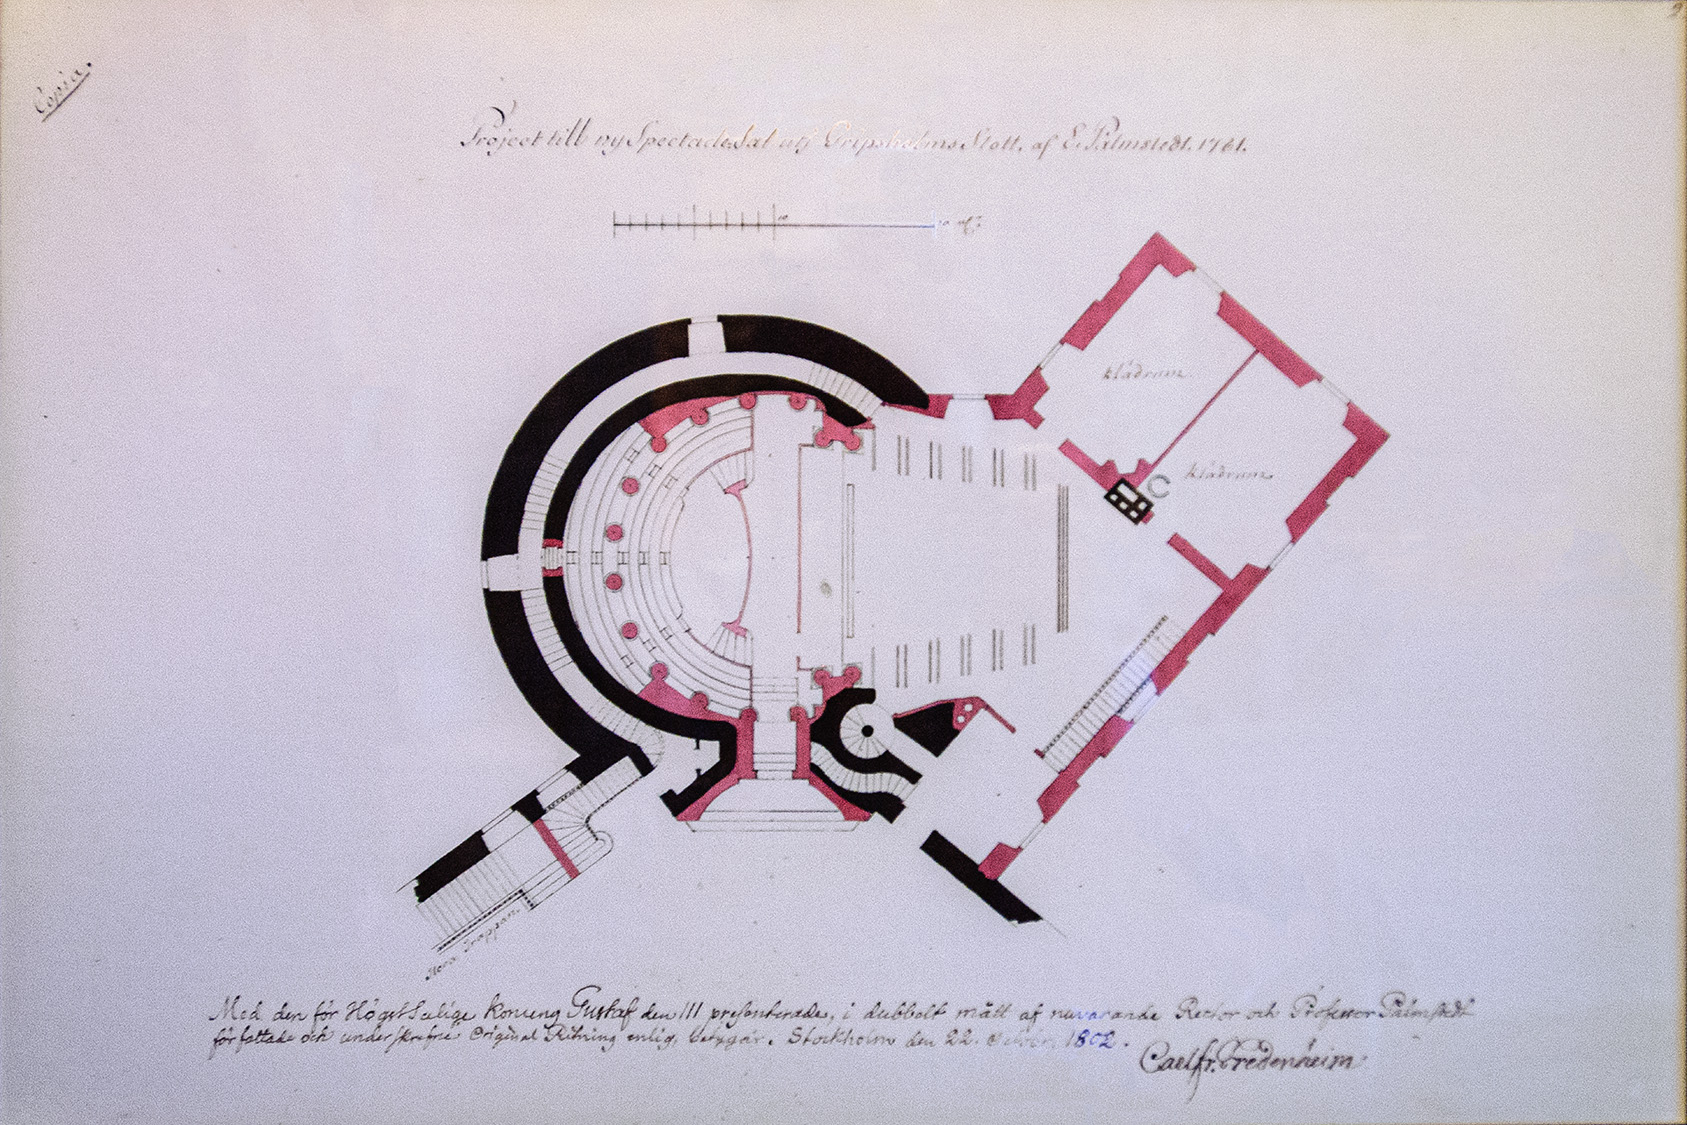 Copia.
Project till ny Spectacle Sal uti Gripsholms Slott, af E. Palmstedt. 1781.
10
20
klädrum.
klädrum.
Stora Trappan.
Med den för Högst Salige Konung Gustaf den III presenterade, i dubbelt mått af nuvarande Rector och Professor Palmstedt
författade och underskrefne Original Ritning enlig, betygar. Stockholm den 22. October 1802.
Carl Fr. Fredenheim